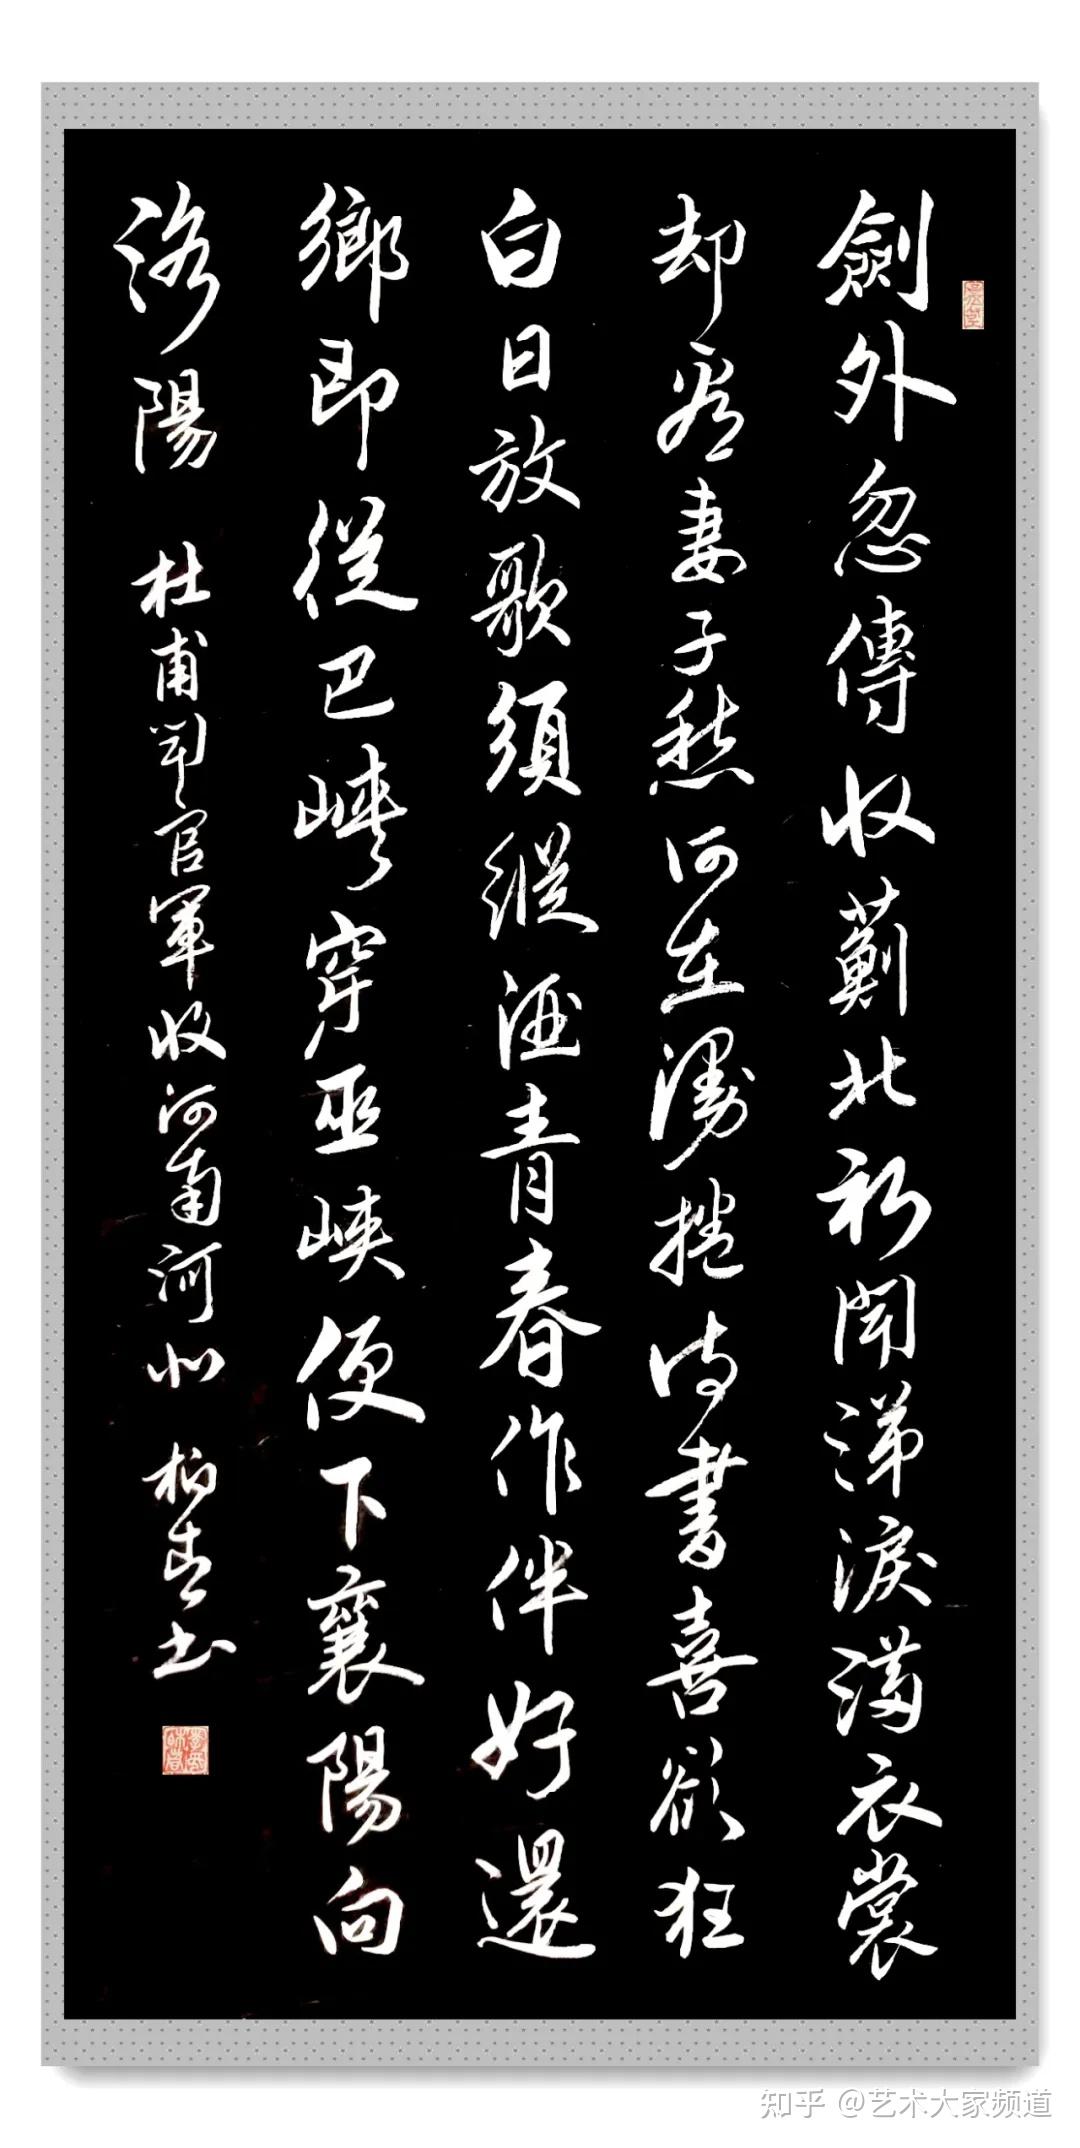 劍外忽傳收薊北初聞涕淚滿衣裳
却看妻子愁何在漫捲詩書喜欲狂
白日放歌須縱酒青春作伴好還
鄉即從巴峽穿巫峽便下襄陽向
洛陽 杜甫聞官軍收河南河北 柏青书
知乎 @艺术大家频道